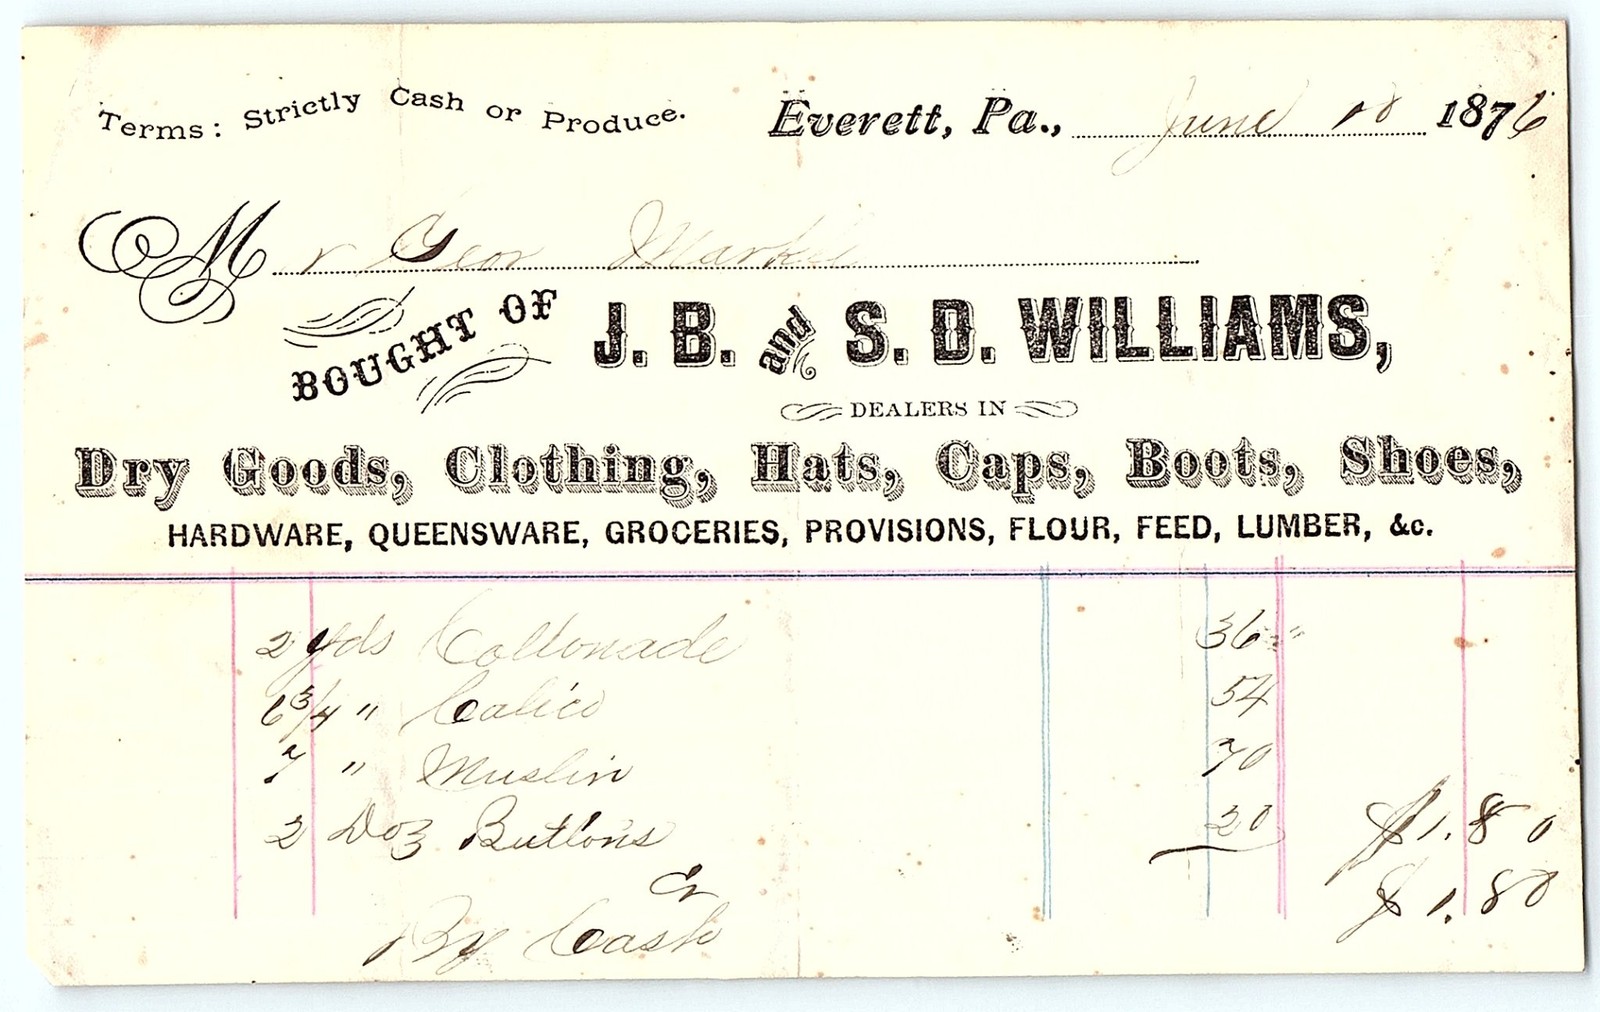 Terms: Strictly Cash or Produce. Everett, Pa., June 18 1876
Mr Geor Markle
BOUGHT OF J. B. and S. D. WILLIAMS,
DEALERS IN
Dry Goods, Clothing, Hats, Caps, Boots, Shoes,
HARDWARE, QUEENSWARE, GROCERIES, PROVISIONS, FLOUR, FEED, LUMBER, &c.
2 yds Cottonade 36 "
6 3/4 " Calico 54
7 " Muslin 70
2 Doz Buttons 20 $1.80
Cr $1.80
By Cash